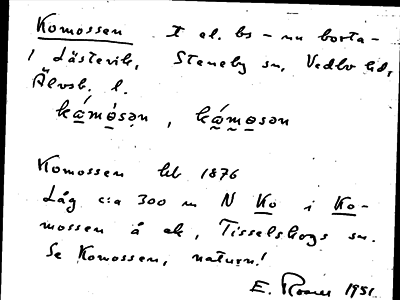 Komossen   t el. bs – nu borta –
i Lästervik, Steneby sn, Vedbo hd,
Älvsb. l.
Komossen   hb 1876
Låg c:a 300 m N Ko i Ko-
mossen å ek, Tisselskogs sn.
Se Komossen, naturn!
E. Rooser 1951